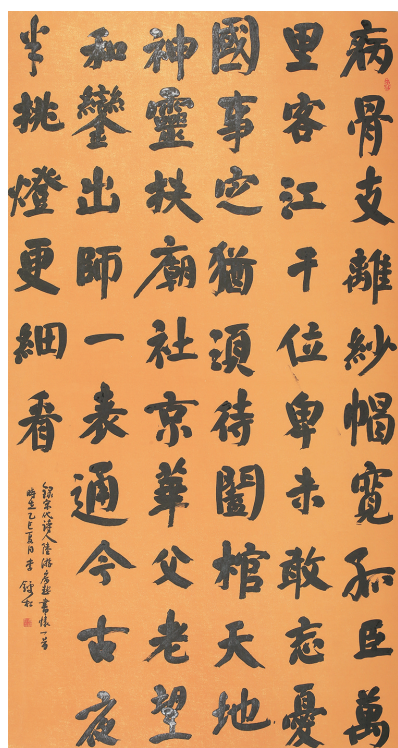 病骨支離紗帽寬孤臣萬
里客江干位卑未敢忘憂
國事定猶須待闔棺天地
神靈扶廟社京華父老望
和鑾出師一表通今古夜
半挑燈更細看
錄宋代詩人陸游病起書懷一首
時在乙巳夏月李